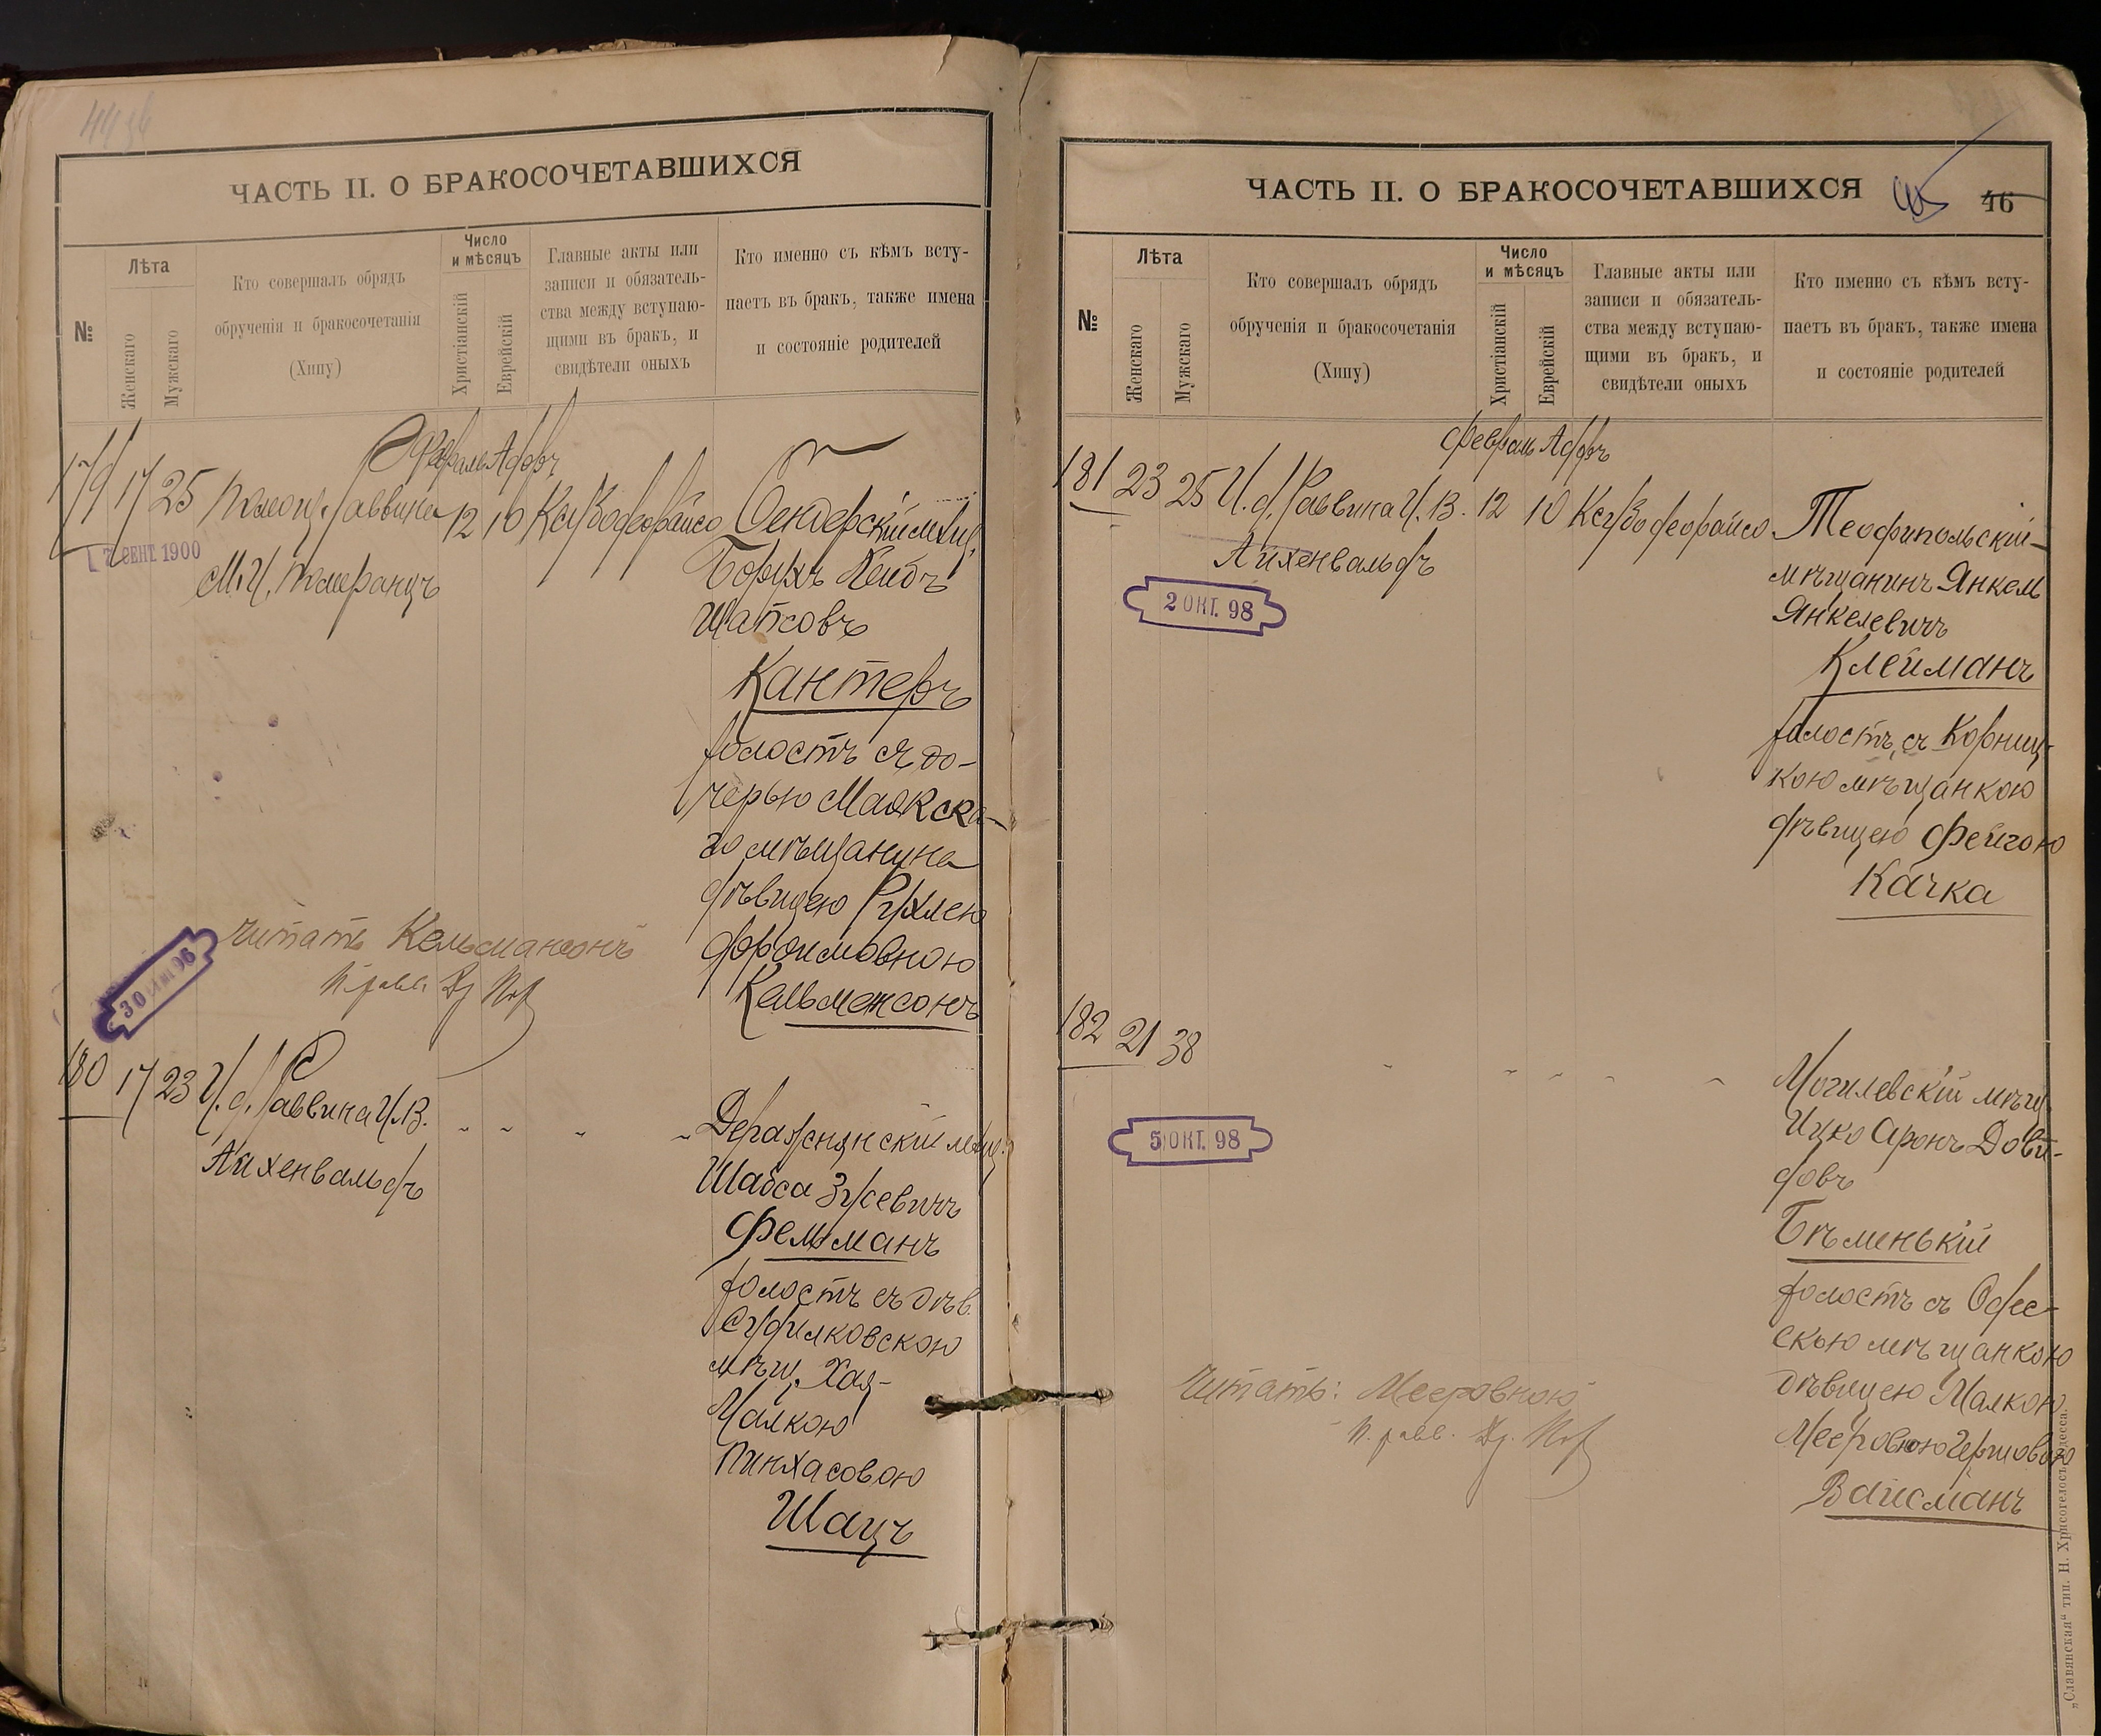 ЧАСТЬ II. О БРАКОСОЧЕТАВШИХСЯ
№
Лѣта
Женскаго
Мужскаго
Кто совершалъ обрядъ
обрученія и бракосочетанія
(Хипу)
Число
и мѣсяцъ
Христіанскій
Еврейскій
Главные акты или
записи и обязатель-
ства между вступаю-
щими въ бракъ, и
свидѣтели оныхъ
Кто именно съ кѣмъ всту-
паетъ въ бракъ, также имена
и состояніе родителей
Февраль Адаръ
179 17 25 Раввина 12 10
7 СЕНТ. 1900
М. И. Померанцъ
Борухъ Лейбъ
Шапсовъ
Кантеръ
холостъ съ до-
черью Маякска-
го мѣщанина
дѣвицею Рухлею
Фроимовною
Кельменсонъ
читать Кельмансонъ
30 96
180 17 23 И. д. Раввина И. В.
Айхенвальдъ
Деражнянскій мѣщ.
Шабса Зусевичъ
Фельманъ
холостъ съ дѣв.
Судилковскою
мѣщ. Хая-
Малкою
Пинхасовою
Шацъ
ЧАСТЬ II. О БРАКОСОЧЕТАВШИХСЯ
46
№
Лѣта
Женскаго
Мужскаго
Кто совершалъ обрядъ
обрученія и бракосочетанія
(Хипу)
Число
и мѣсяцъ
Христіанскій
Еврейскій
Главные акты или
записи и обязатель-
ства между вступаю-
щими въ бракъ, и
свидѣтели оныхъ
Кто именно съ кѣмъ всту-
паетъ въ бракъ, также имена
и состояніе родителей
Февраль Адаръ
181 23 25 И. д. Раввина И. В. 12 10
Айхенвальдъ
2 ОКТ. 98
Теофипольскій
мѣщанинъ Янкель
Янкелевичъ
Клейманъ
холостъ, съ Корниц-
кою мѣщанкою
дѣвицею Фейгою
Качка
182 21 38
5 ОКТ. 98
Могилевскій мѣщ.
Ицко Аронъ Дови-
довъ
Бѣленькій
холостъ съ Одес-
скою мѣщанкою
дѣвицею Малкою
Мееровною Гершовою
Вайсманъ
Читать: Мееровною
„Славянская“ тип. Н. Хрисогелосъ, Одесса.